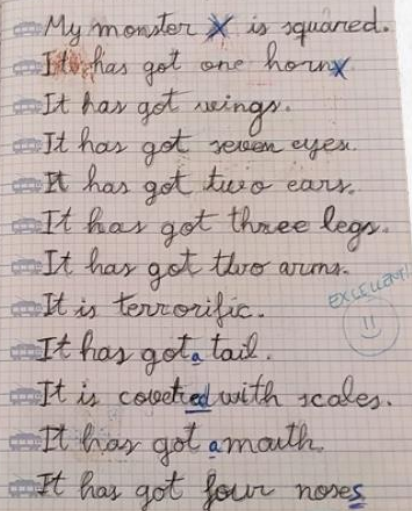 My monster is squared.
It has got one horn
It has got wings.
It has got seven eyes.
It has got two ears.
It has got three legs.
It has got two arms.
It is terrorific.
EXCELLENT!
It has got a tail.
It is covered with scales.
It has got a mouth.
It has got four noses